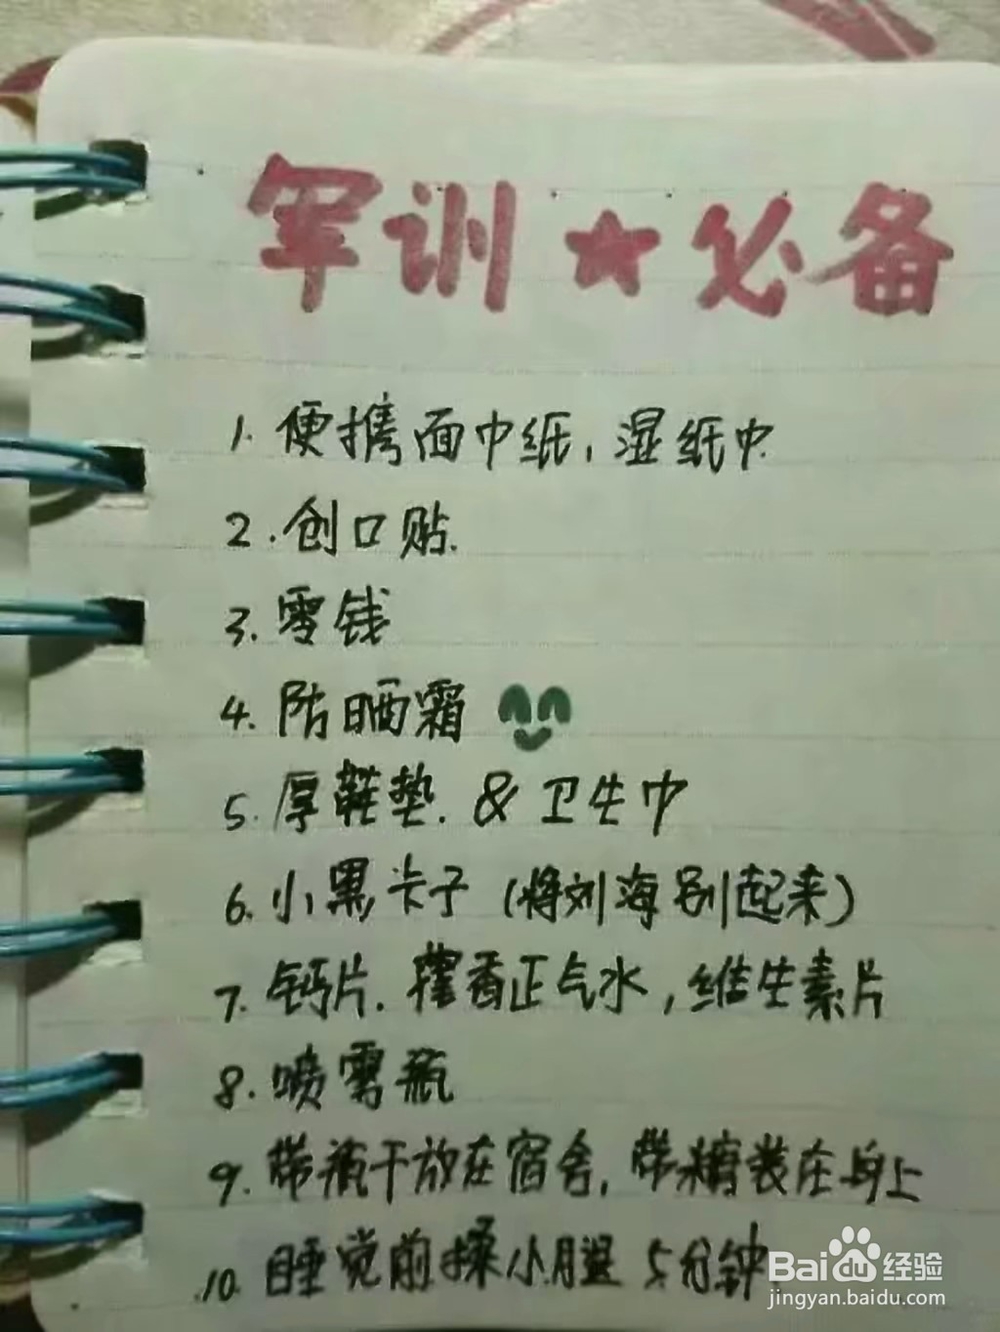 军训★必备
1. 便携面巾纸, 湿纸巾.
2. 创口贴.
3. 零钱
4. 防晒霜
5. 厚鞋垫. & 卫生巾
6. 小黑卡子 (将刘海别起来)
7. 钙片. 藿香正气水, 维生素片
8. 喷雾瓶
9. 带瓶干放在宿舍, 带糖装在身上
10. 睡觉前揉小腿 5分钟
Baidu经验
jingyan.baidu.com